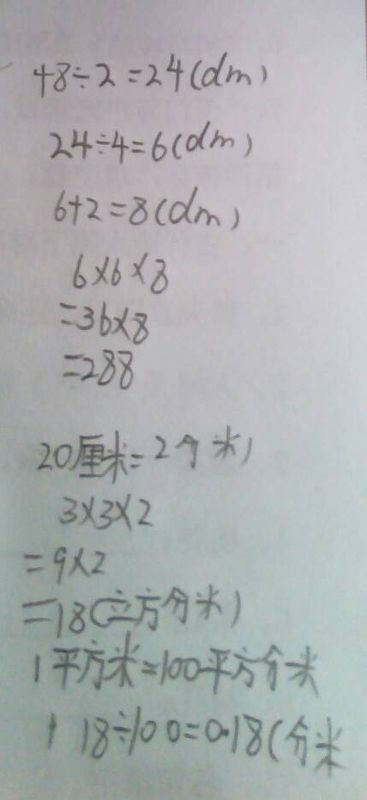 48÷2=24(dm)
24÷4=6(dm)
6+2=8(dm)
6×6×8
=36×8
=288
20厘米=2分米)
3×3×2
=9×2
=18(立方分米)
1平方米=100平方分米
18÷100=0.18(分米